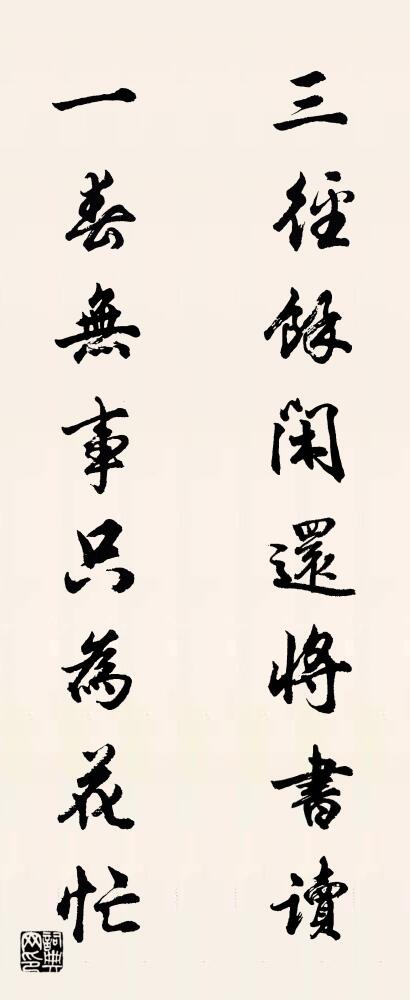 三徑餘閑還將書讀
一春無事只為花忙
詞典網印